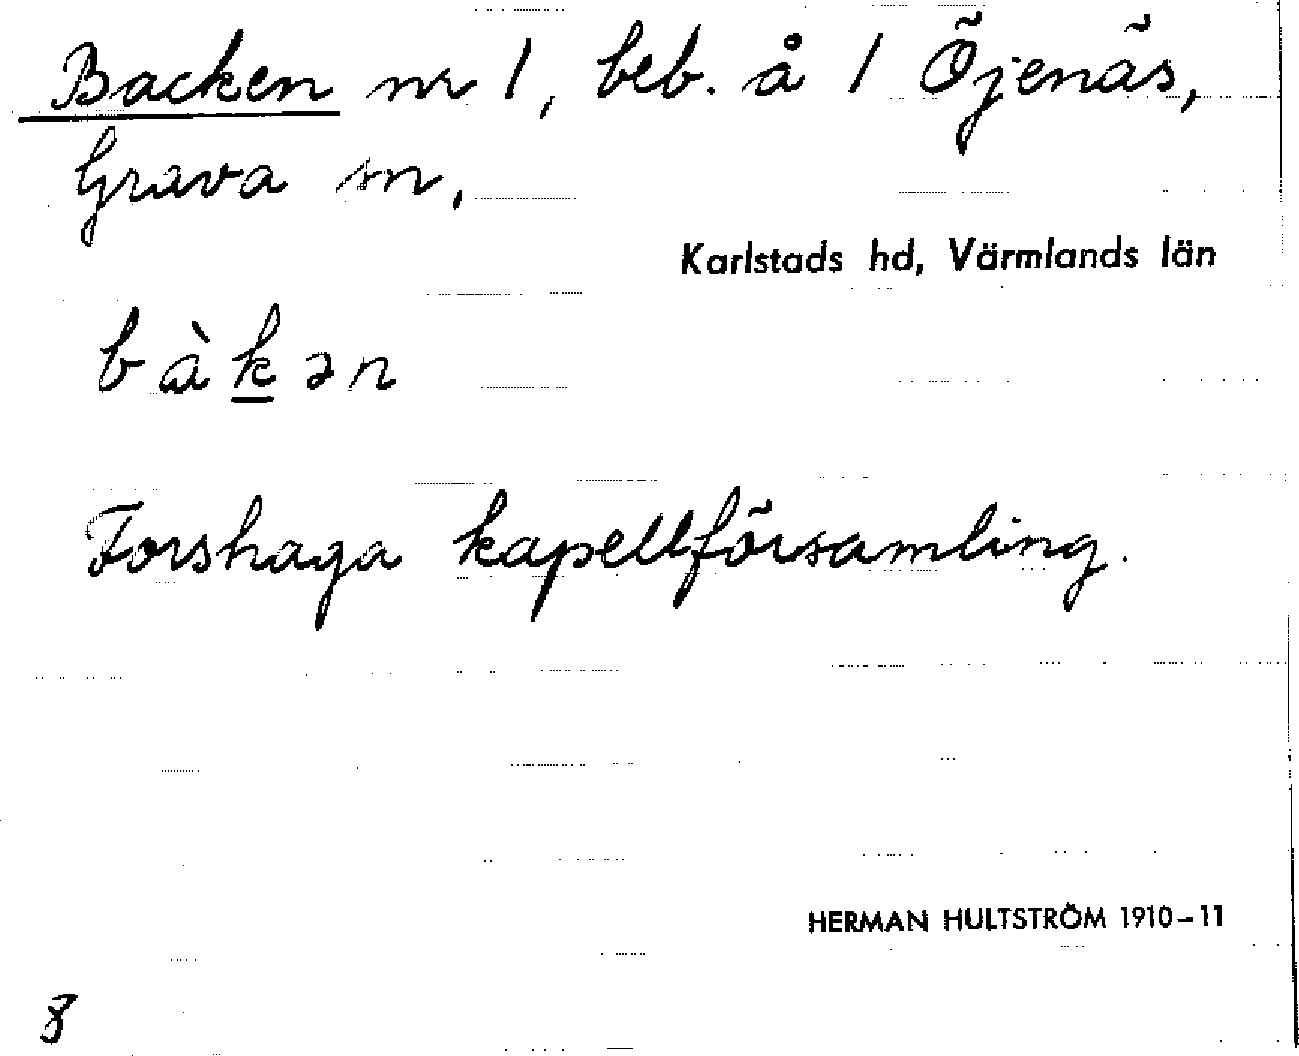 Backen nr 1, beb. å 1 Öjenäs,
Grava sn,
Karlstads hd, Värmlands län
bàkən
Forshaga kapellförsamling.
HERMAN HULTSTRÖM 1910–11
8